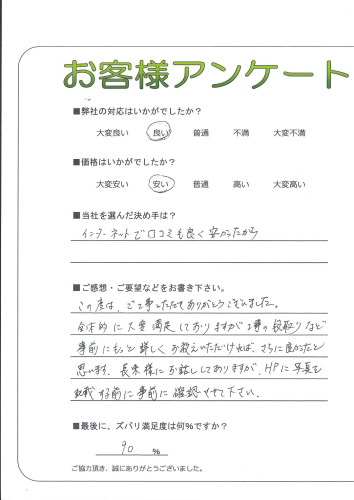 お客様アンケート
■弊社の対応はいかがでしたか?
大変良い 良い 普通 不満 大変不満
■価格はいかがでしたか?
大変安い 安い 普通 高い 大変高い
■当社を選んだ決め手は?
インターネットで口コミも良く安かったから
■ご感想・ご要望などをお書き下さい。
この度は、工事していただきありがとうございました。
全体的に大変満足しておりますが工事の段取りなど
事前にもっと詳しくお教えいただければ、さらに良かったと
思います。長末様にお話ししてありますが、HPに写真を
掲載する前に事前に確認させて下さい。
■最後に、ズバリ満足度は何%ですか?
90 %
ご協力頂き、誠にありがとうございました。